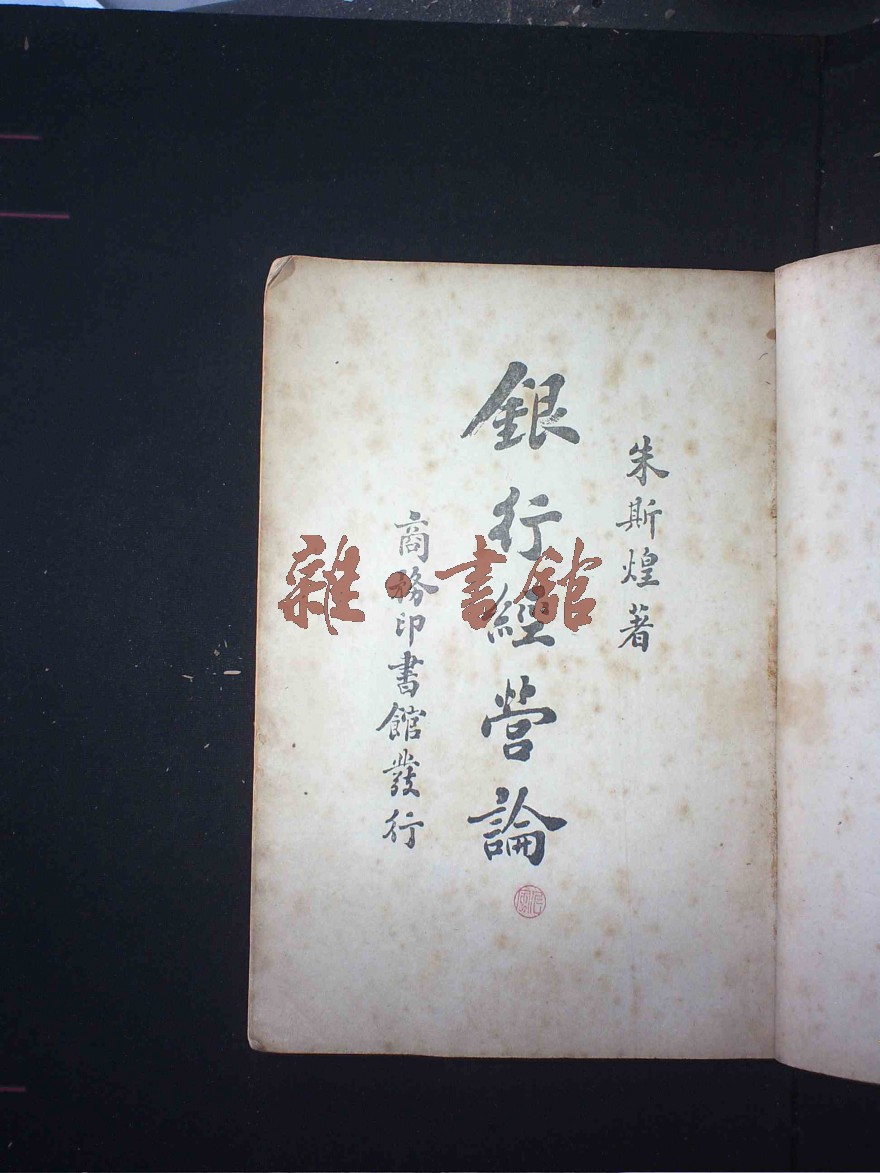 朱斯煌著
銀行經營論
商務印書館發行
雜·書館